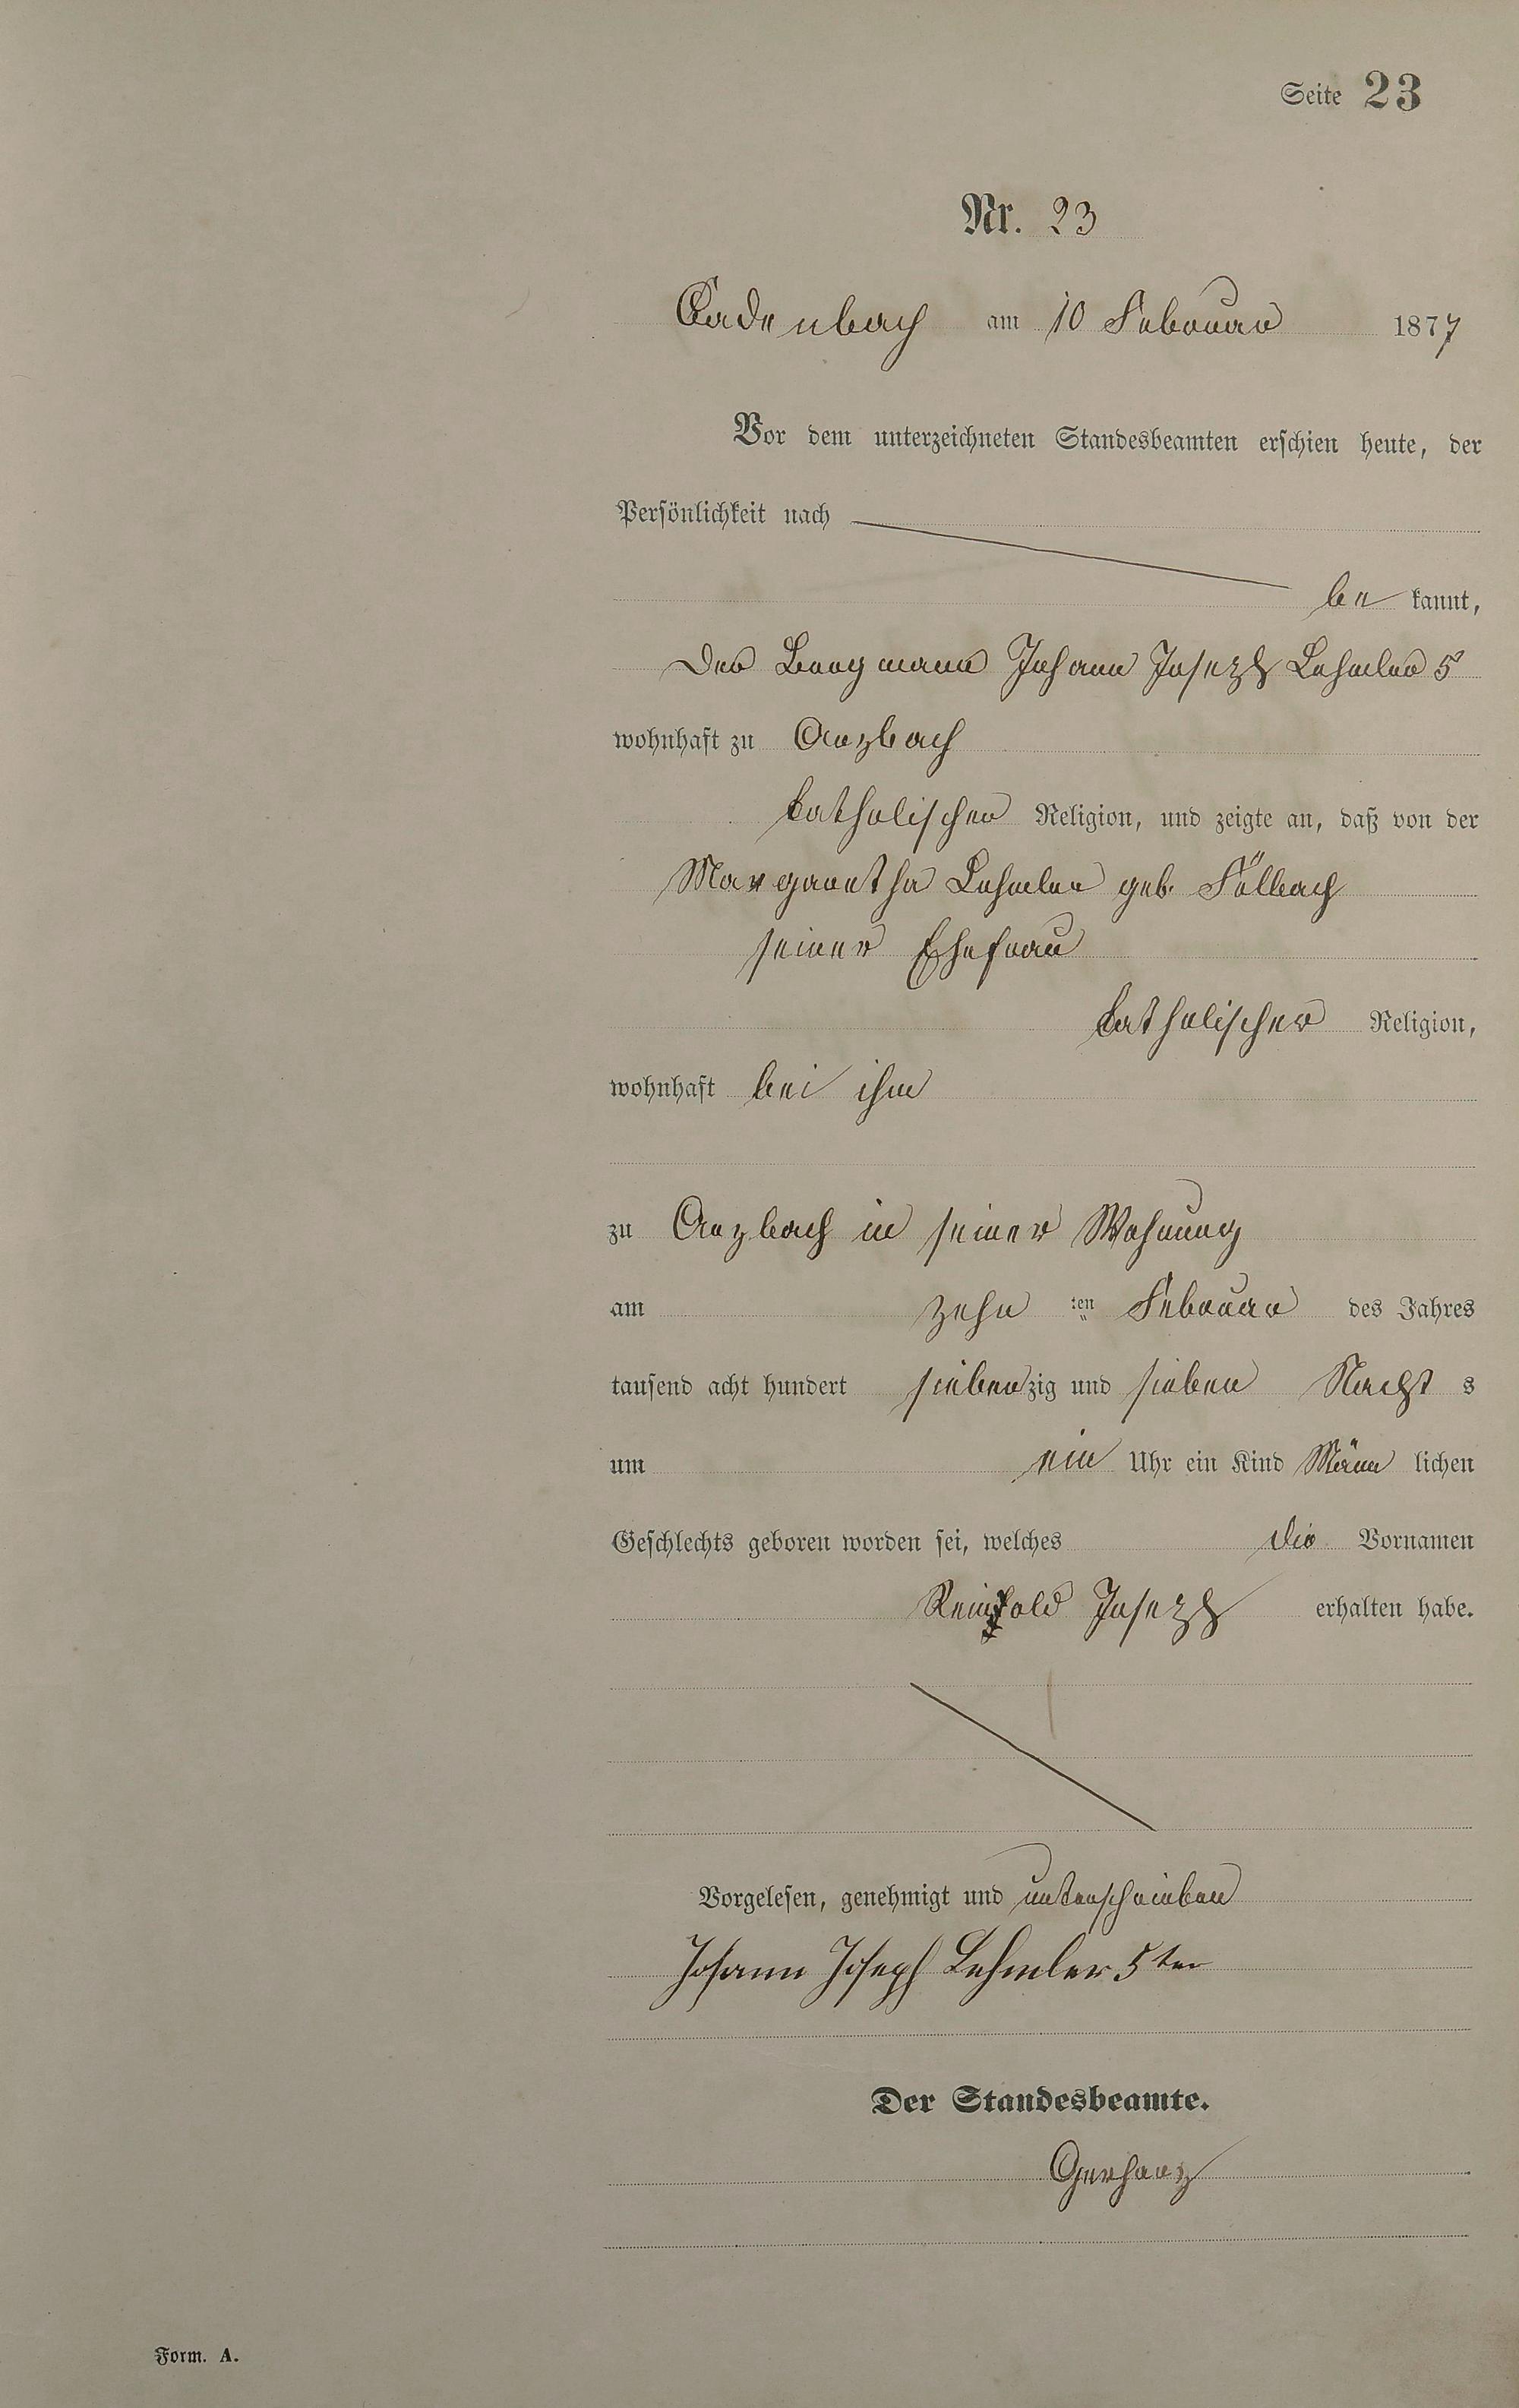 Seite 23
Nr. 23
Cadenbach am 10 Februar 1877
Vor dem unterzeichneten Standesbeamten erschien heute, der
Persönlichkeit nach
be kannt,
der Bergmann Johann Joseph Lehmler 5
wohnhaft zu Arzbach
katholischer Religion, und zeigte an, daß von der
Margaretha Lehmler geb.
seiner Ehefrau
katholischer Religion,
wohnhaft bei ihm
zu Arzbach in seiner Wohnung
am zehn ten Februar des Jahres
tausend acht hundert siebenzig und sieben Nacht s
um ein Uhr ein Kind Männ lichen
Geschlechts geboren worden sei, welches die Vornamen
Reinhold Joseph erhalten habe.
Vorgelesen, genehmigt und unterschrieben
Johann Joseph Lehmler 5ter
Der Standesbeamte.
Gerharz
Form. A.